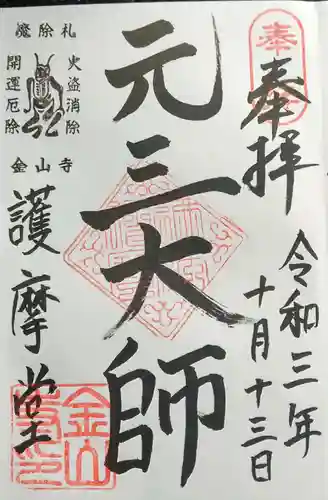 奉拝
令和三年
十月十三日
元三大師
魔除札
火盗消除
開運厄除
金山寺
護摩堂
奉拝